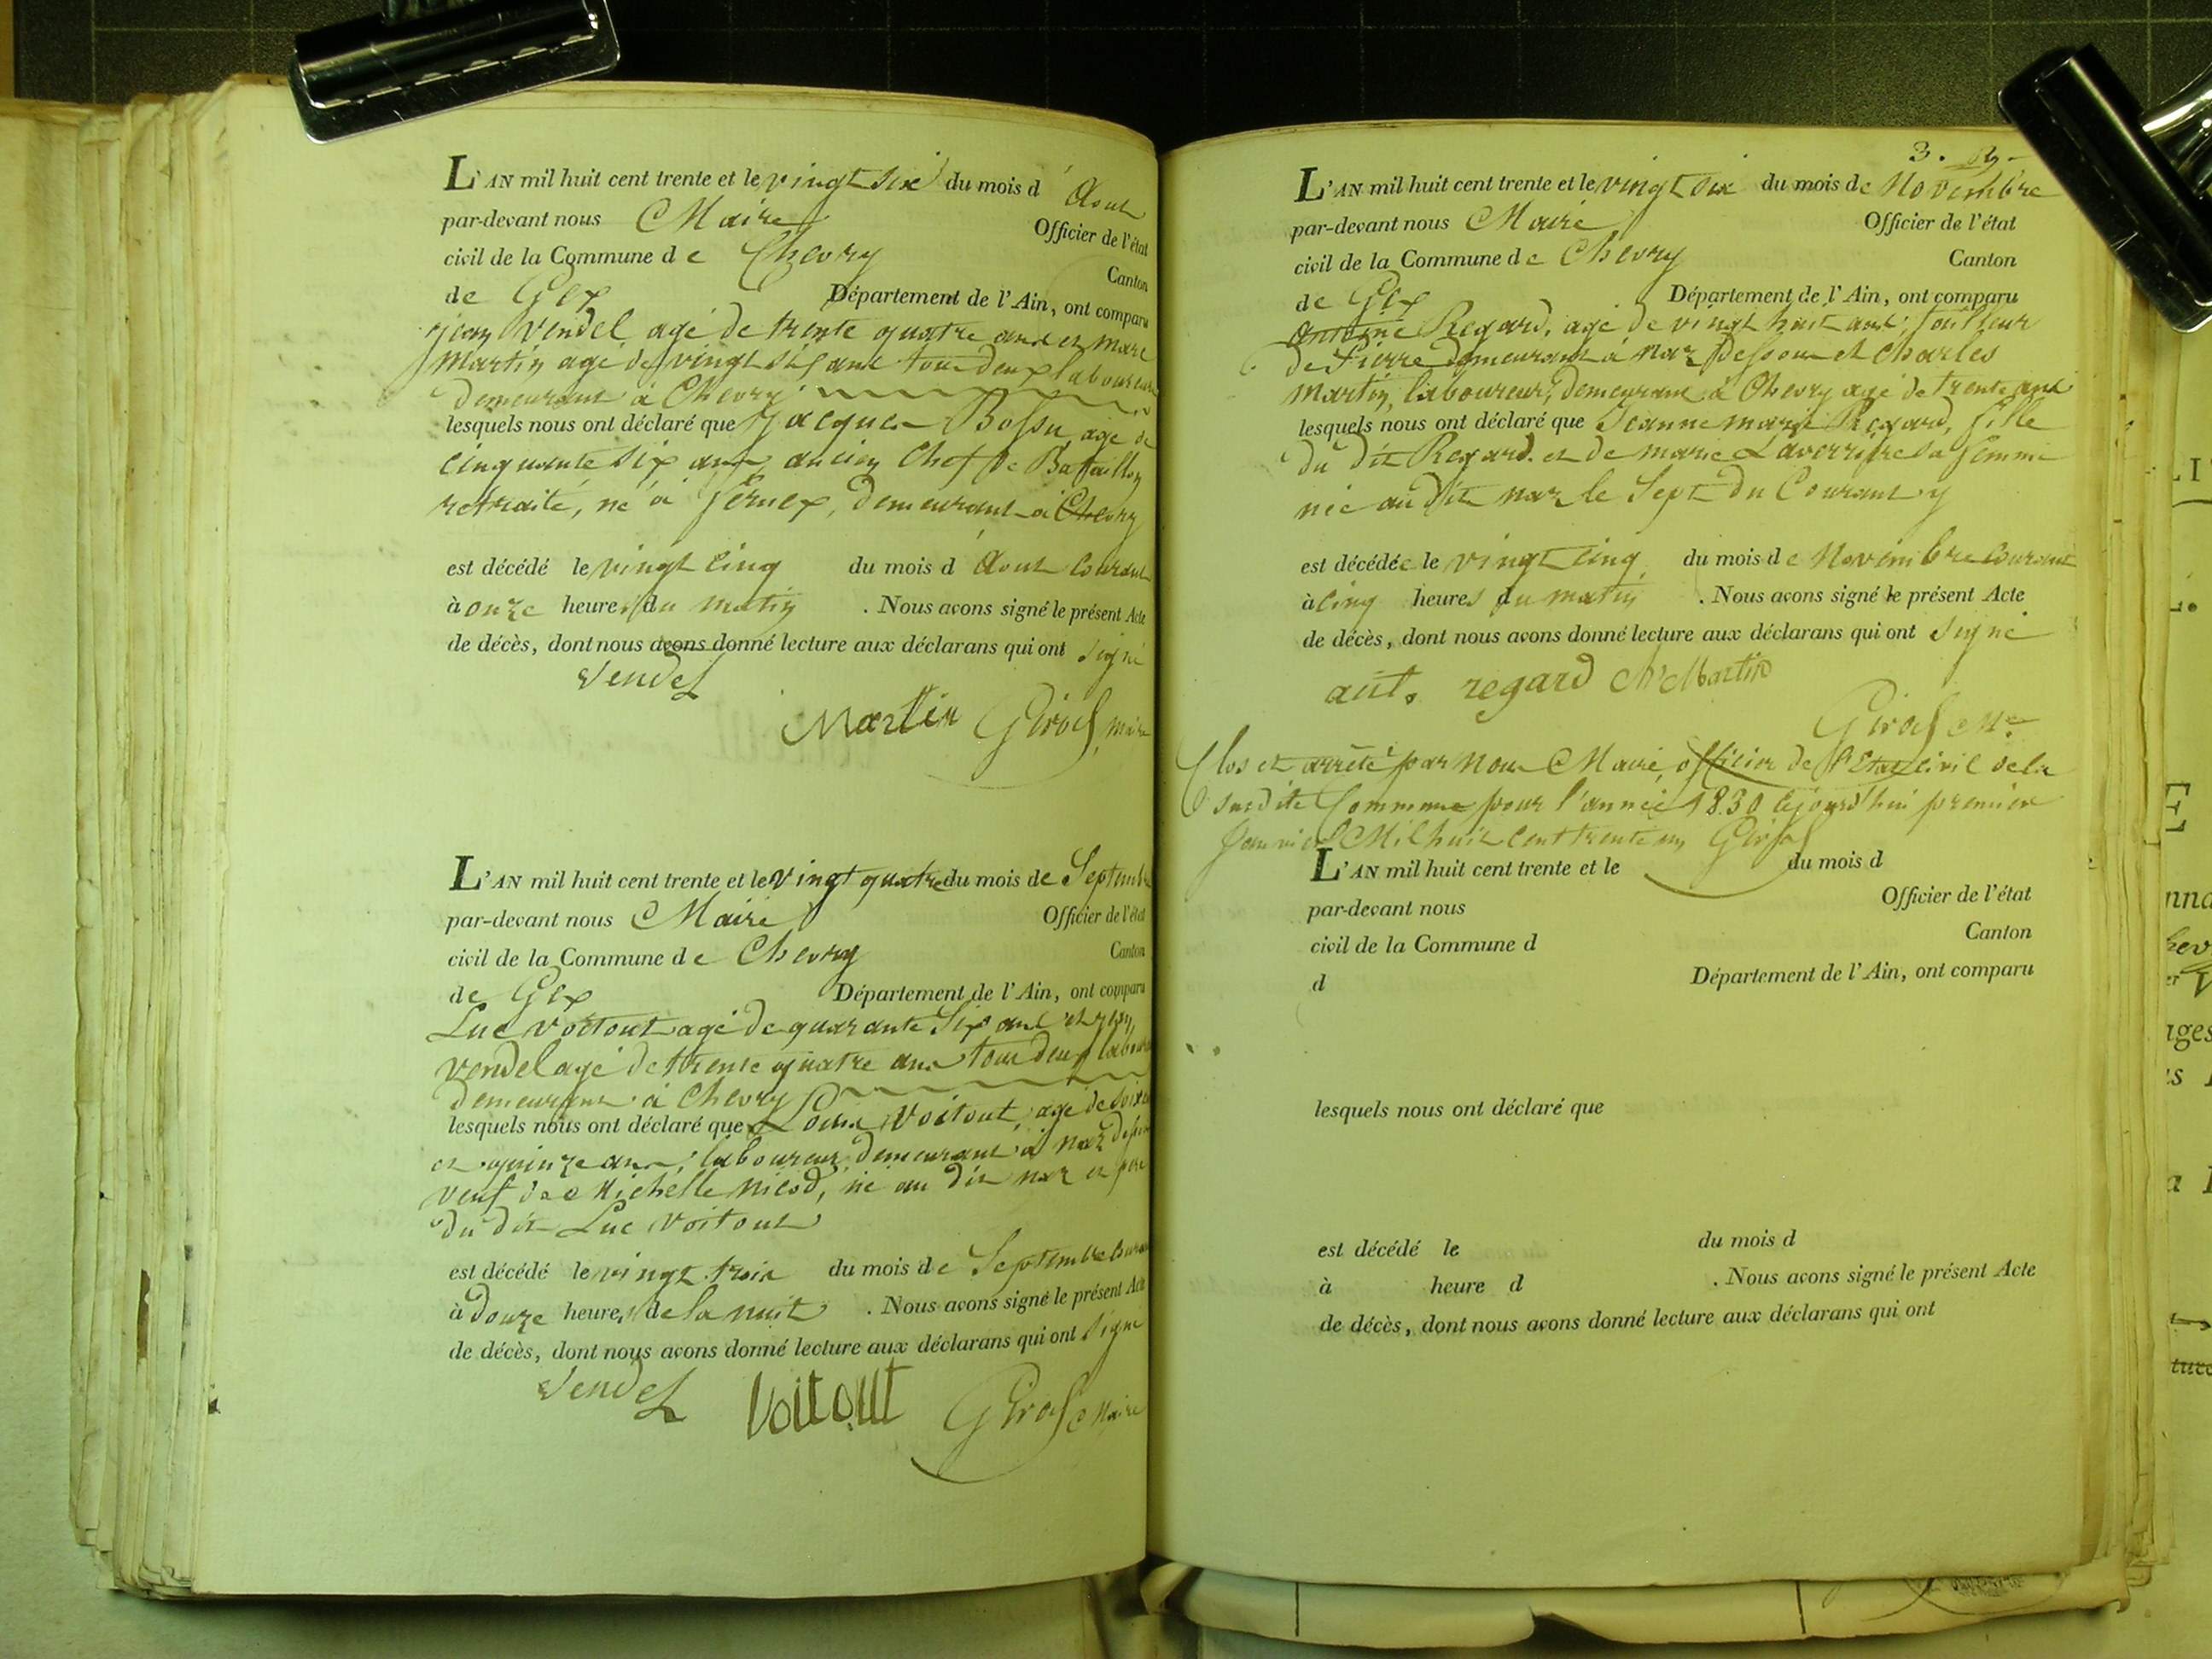 L'AN mil huit cent trente et le vingt six du mois d'Aout
par-devant nous Maire Officier de l'état
civil de la Commune de Chevry Canton
de Gex Département de l'Ain, ont comparu
jean Vendel agé de trente quatre ans et marc
Martin agé de vingt ans tous deux laboureurs
demeurant à Chevry
lesquels nous ont déclaré que Jacques Bossu agé de
cinquante six ans ancien Chef de Bataillon
retraité, né à fernex, demeurant à Chevry
est décédé le vingt cinq du mois d'Aout Courant
à onze heures du matin . Nous avons signé le présent Acte
de décès, dont nous avons donné lecture aux déclarans qui ont signé
Vendel
Martin Girod, maire
L'AN mil huit cent trente et le vingt quatre du mois de Septembre
par-devant nous Maire Officier de l'état
civil de la Commune de Chevry Canton
de Gex Département de l'Ain, ont comparu
Luc Voitout agé de quarante Six ans et jean
vendel agé de trente quatre ans tous deux
demeurant à Chevry
lesquels nous ont déclaré que Louis Voitout, agé de
et quinze ans, laboureur, demeurant à naz
veuf de Michelle Nicod, né au dit naz et père
du dit Luc Voitout
est décédé le vingt trois du mois de Septembre
à Douze heures de la nuit . Nous avons signé le présent Acte
de décès, dont nous avons donné lecture aux déclarans qui ont signé
Vendel Voitout Girod Maire
3.
L'AN mil huit cent trente et le vingt six du mois de Novembre
par-devant nous Maire Officier de l'état
civil de la Commune de Chevry Canton
de Gex Département de l'Ain, ont comparu
Antoine Regard, agé de vingt huit ans, tailleur
de Pierre demeurant à naz dessous et Charles
Martin, laboureur, demeurant à Chevry agé de trente ans
lesquels nous ont déclaré que Jeanne marie Regard, fille
du dit Regard et de marie Laverrière sa femme
née au dit naz le Sept du Courant
est décédée le vingt cinq du mois de Novembre Courant
à cinq heures du matin . Nous avons signé le présent Acte
de décès, dont nous avons donné lecture aux déclarans qui ont signé
ant. regard Martin
Girod Me
Clos et arrêté par Nous Maire, officier de l'Etat Civil de la
susdite Commune pour l'année 1830 Cejourd'hui premier
Janvier Mil huit Cent trente un Girod
L'AN mil huit cent trente et le du mois d
par-devant nous Officier de l'état
civil de la Commune d Canton
d Département de l'Ain, ont comparu
lesquels nous ont déclaré que
est décédé le du mois d
à heure d . Nous avons signé le présent Acte
de décès, dont nous avons donné lecture aux déclarans qui ont